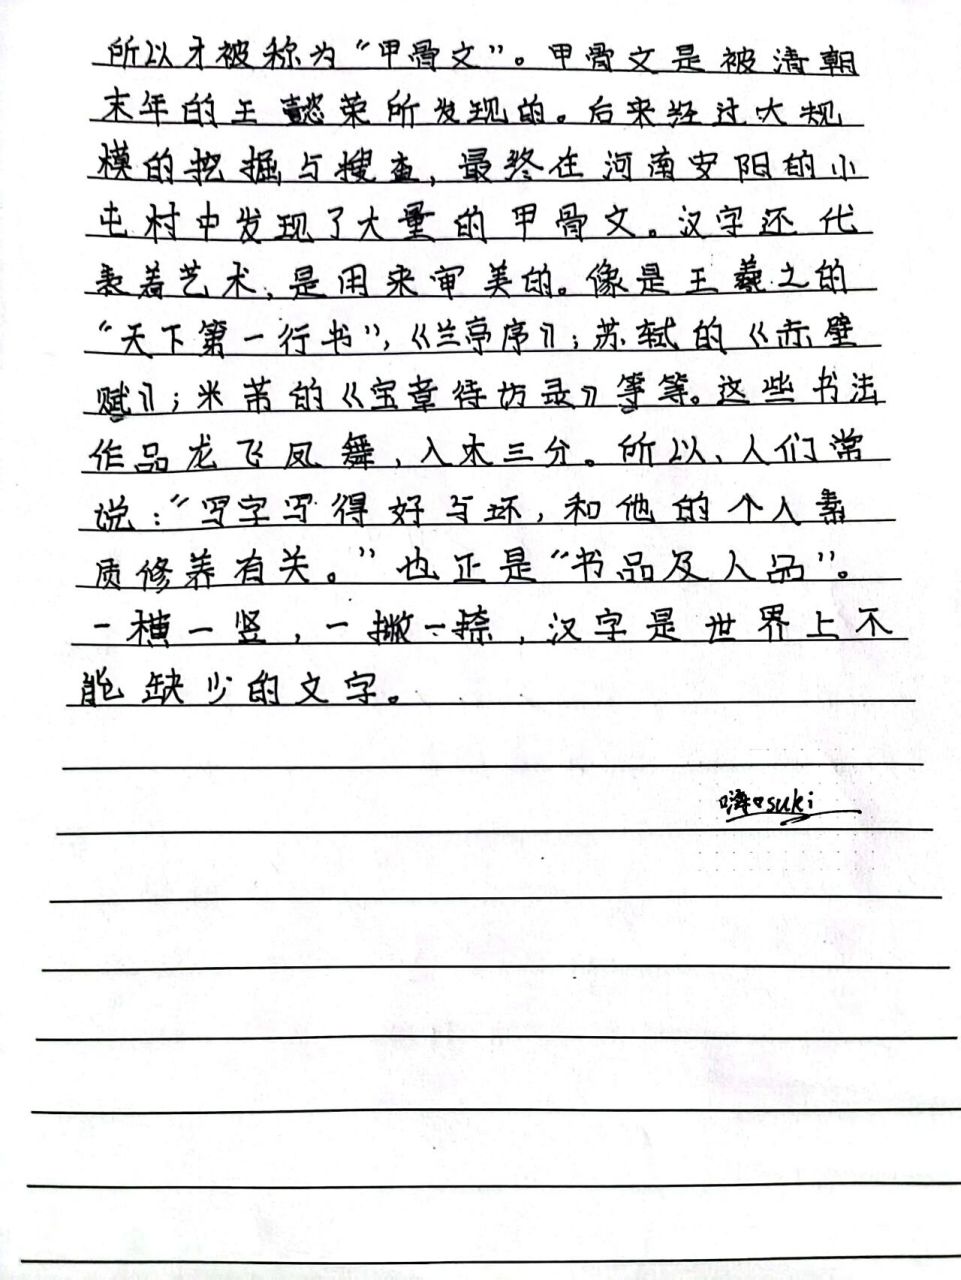 所以才被称为“甲骨文”。甲骨文是被清朝
末年的王懿荣所发现的。后来经过大规
模的挖掘与搜查，最终在河南安阳的小
屯村中发现了大量的甲骨文。汉字还代
表着艺术，是用来审美的。像是王羲之的
“天下第一行书”，《兰亭序》；苏轼的《赤壁
赋》；米芾的《宝章待访录》等等。这些书法
作品龙飞凤舞，入木三分。所以、人们常
说：“写字写得好与坏，和他的个人素
质修养有关。”也正是“书品及人品”。
一横一竖，一撇一捺，汉字是世界上不
能缺少的文字。
suki